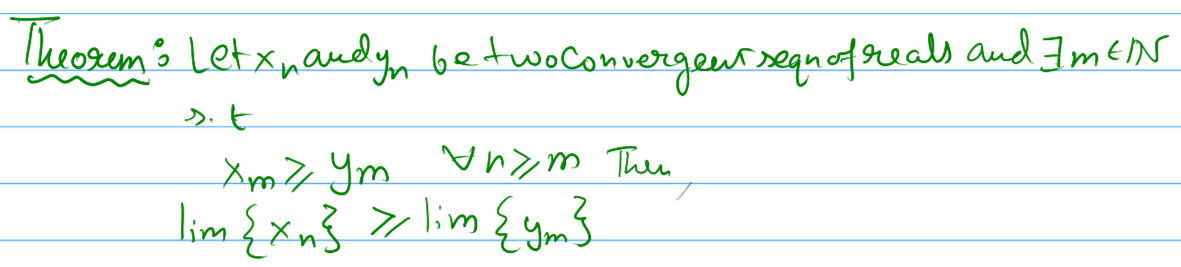 Theorem: Let xₙ and yₙ be two Convergent seqn of reals and ∃ m ∈ ℕ
s.t
xₘ ⩾ yₘ ∀ n ⩾ m Then,
lim {xₙ} ⩾ lim {yₘ}